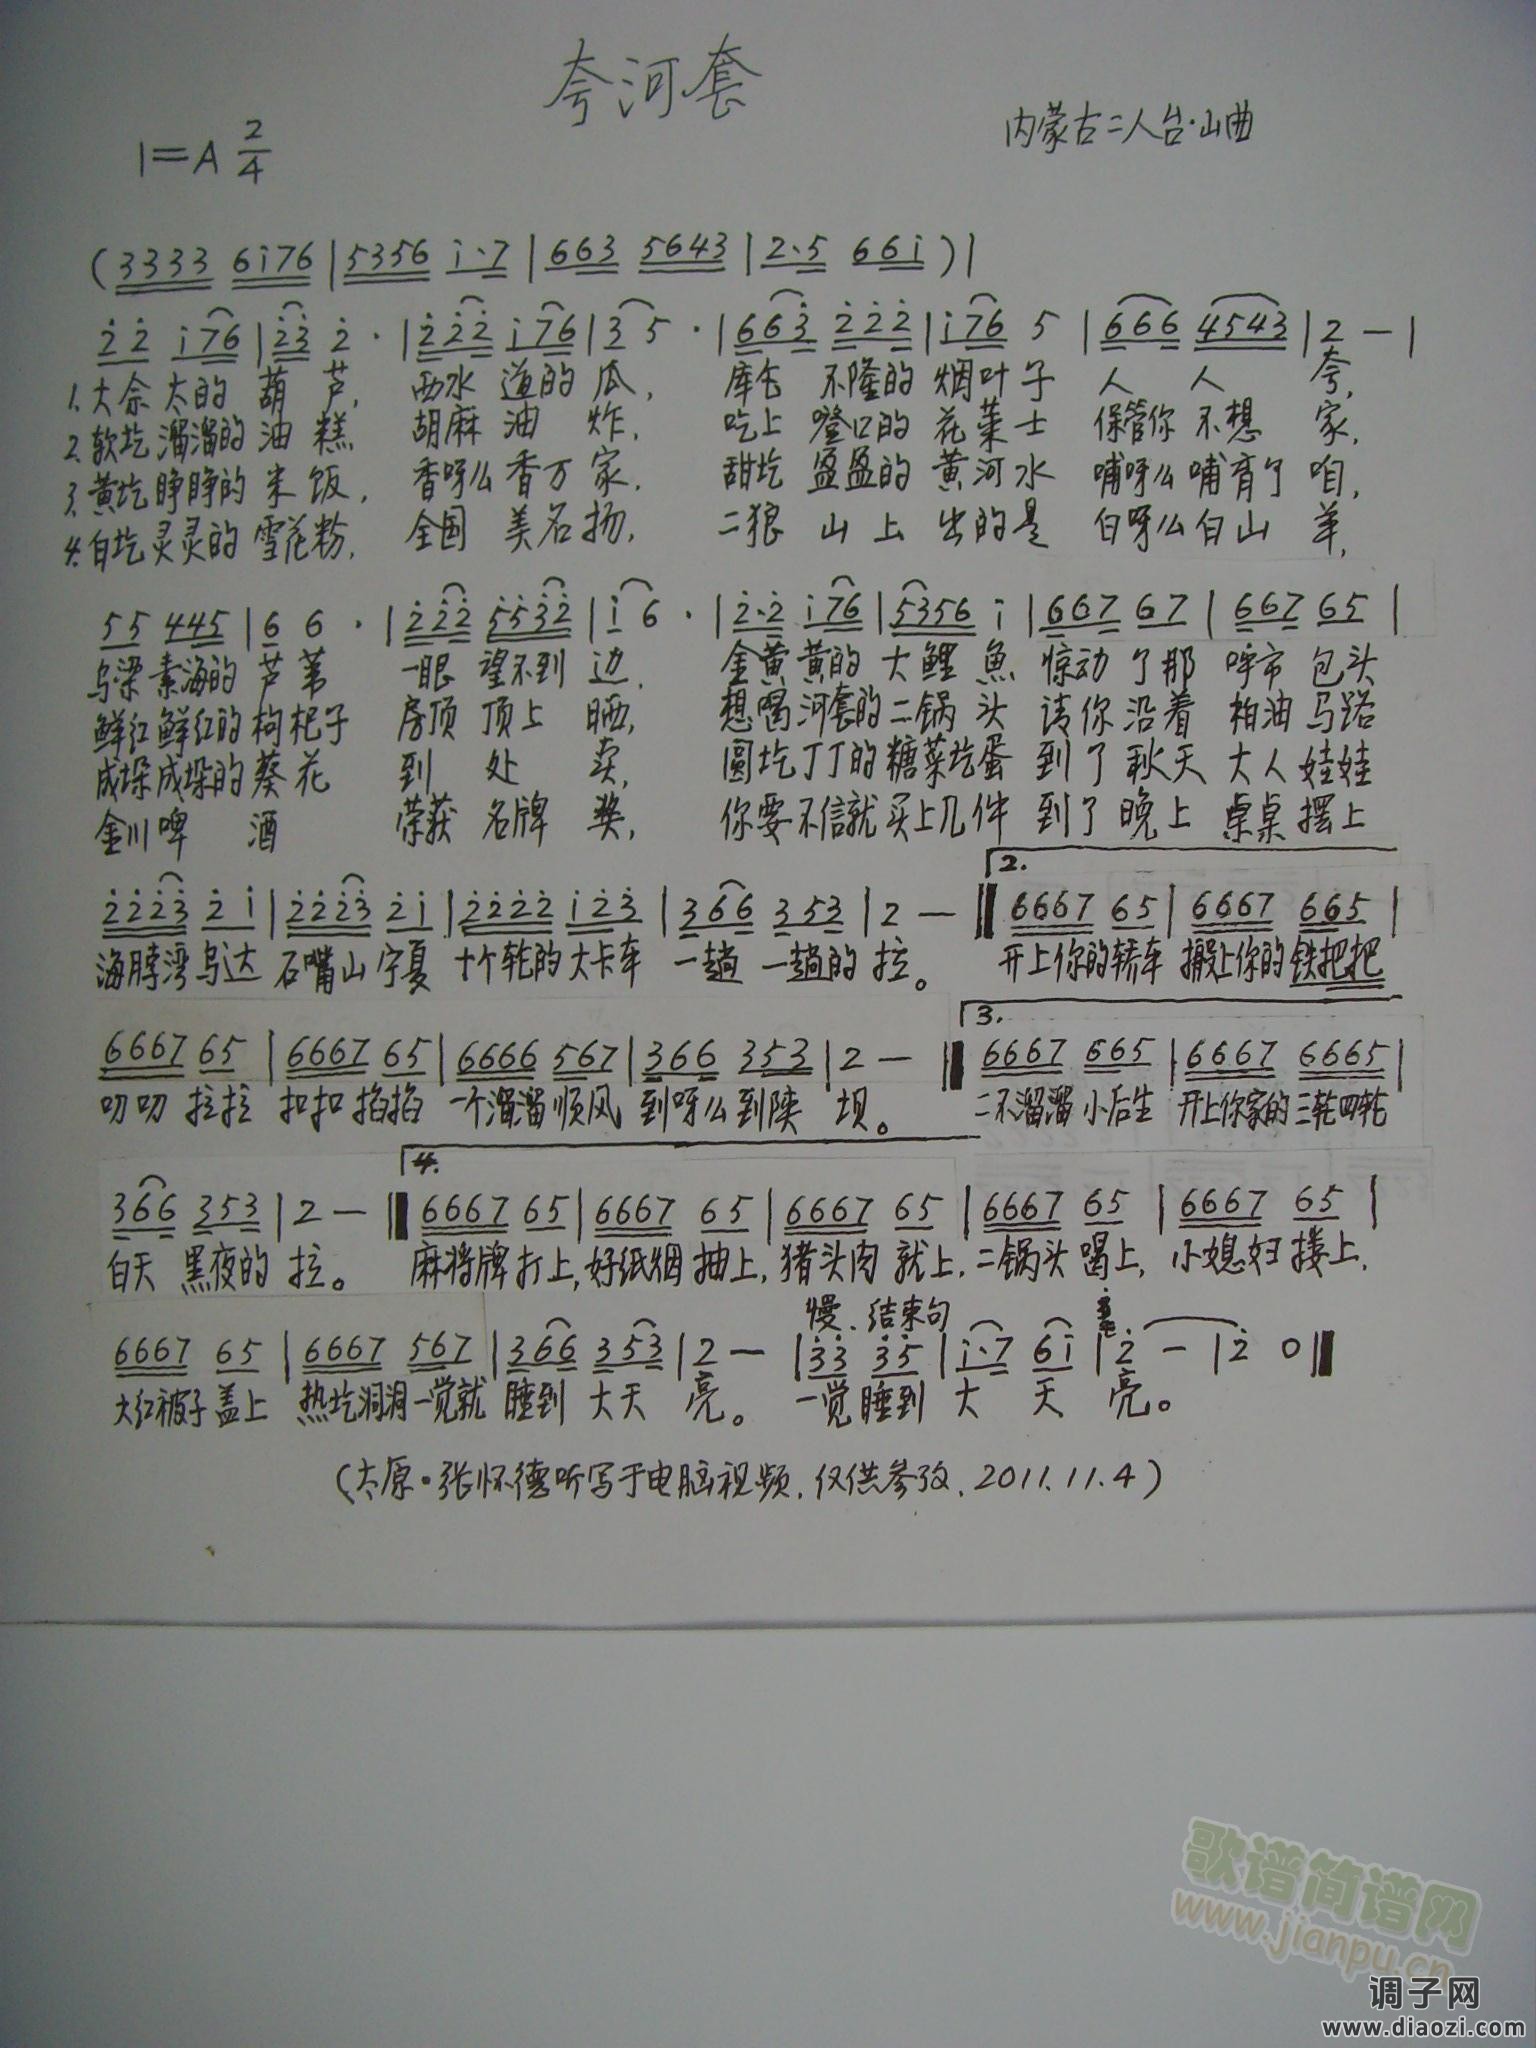 夸河套
内蒙古二人台·山曲
1=A 2/4
(3333 6i76|5356 i·7|663 5643|2·5 66i)|
22 i76|23 2·|222 i76|35·|663 222|i76 5|666 4543|2—|
1.大佘太的葫芦,西水道的瓜,库仑不隆的烟叶子人人夸,
2.软圪溜溜的油糕胡麻油炸,吃上噔口的花莱士保管你不想家,
3.黄圪睁睁的米饭,香呀么香万家,甜圪盈盈的黄河水哺呀么哺育了咱,
4.白圪灵灵的雪花粉,全国美名扬,二狼山上出的是白呀么白山羊,
55 445|6 6·|222 5532|i6·|2·2 i76|5356 i|667 67|667 65|
乌梁素海的芦苇一眼望不到边,金黄黄的大鲤魚惊动了那呼市包头
鲜红鲜红的枸杞子房顶顶上晒,想喝河套的二锅头请你沿着柏油马路
成垛成垛的葵花到处卖,圆圪丁丁的糖菜圪蛋到了秋天大人娃娃
金川啤酒荣获名牌奖,你要不信就买上几件到了晚上桌桌摆上
2.
2223 2i|2223 2i|2222 i23|366 353|2—‖6667 65|6667 665|
海脖湾乌达石嘴山宁夏十个轮的大卡车一趟一趟的拉。开上你的轿车搬上你的铁把把
3.
6667 65|6667 65|6666 567|366 353|2—‖6667 665|6667 6665|
叨叨拉拉扣扣掐掐一个溜溜顺风到呀么到陕坝。二不溜溜小后生开上你家的三轮四轮
4.
366 353|2—‖6667 65|6667 65|6667 65|6667 65|6667 65|
白天黑夜的拉。麻将牌打上,好纸烟抽上,猪头肉就上,二锅头喝上,小媳妇搂上,
慢、结束句
6667 65|6667 567|366 353|2—|33 35|i·7 6i|2—|2 0‖
大红被子盖上热圪洞洞一觉就睡到大天亮。一觉睡到大天亮。
(太原·张怀德听写于电脑视频,仅供参考,2011.11.4)
歌谱简谱网
www.jianpu.cn
调子网
www.diaozi.com